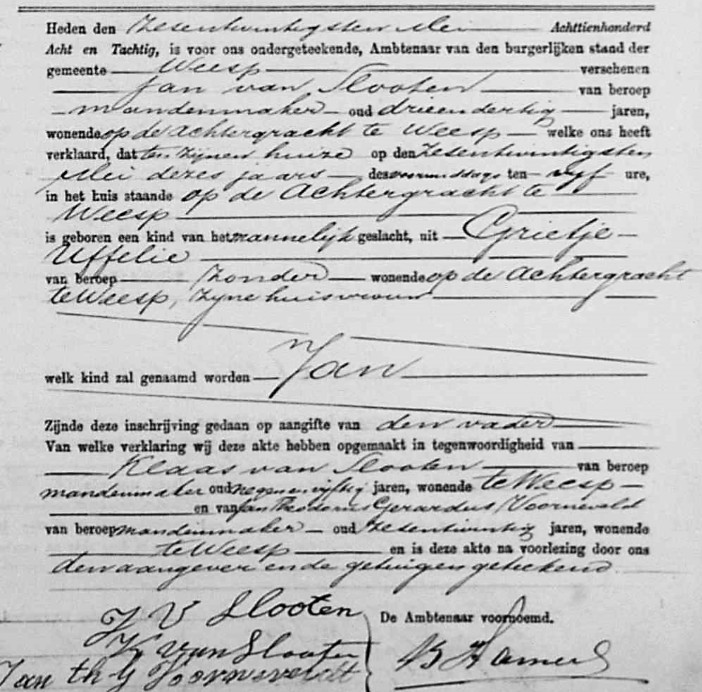 Heden den Zesentwintigsten Mei Achttienhonderd
Acht en Tachtig, is voor ons ondergeteekende, Ambtenaar van den burgerlijken stand der
gemeente Weesp verschenen
Jan van Slooten van beroep
mandenmaker oud drieendertig jaren,
wonende op de Achtergracht te Weesp welke ons heeft
verklaard, dat ten zijnen huize op den Zesentwintigsten
Mei dezes jaars des voormiddags ten vijf ure,
in het huis staande op de Achtergracht te
Weesp
is geboren een kind van het mannelijk geslacht, uit Grietje
Uffelie
van beroep Zonder wonende op de Achtergracht
te Weesp, zijne huisvrouw
welk kind zal genaamd worden Jan
Zijnde deze inschrijving gedaan op aangifte van den vader
Van welke verklaring wij deze akte hebben opgemaakt in tegenwoordigheid van
Klaas van Slooten van beroep
mandenmaker oud negenenvijftig jaren, wonende te Weesp
en van Jan Theodorus Gerardus Voorneveld
van beroep mandenmaker oud Zesentwintig jaren, wonende
te Weesp en is deze akte na voorlezing door ons
den aangever en de getuigen geteekend.
J V Slooten De Ambtenaar voornoemd.
K van Slooten
Jan th G Voorneveldt